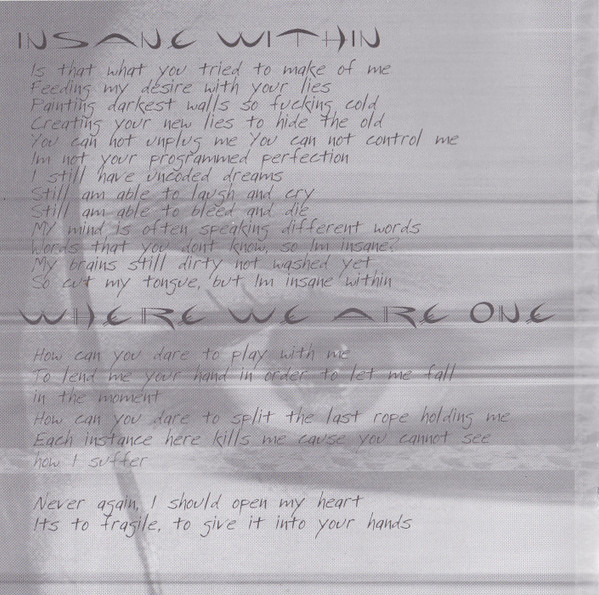 INSANE WITHIN
Is that what you tried to make of me
Feeding my desire with your lies
Painting darkest walls so fucking cold
Creating your new lies to hide the old
You can not unplug me You can not control me
Im not your programmed perfection
I still have uncoded dreams
Still am able to laugh and cry
Still am able to bleed and die
My mind is often speaking different words
Words that you dont know, so Im insane?
My brains still dirty not washed yet
So cut my tongue, but Im insane within
WHERE WE ARE ONE
How can you dare to play with me
To lend me your hand in order to let me fall
in the moment
How can you dare to split the last rope holding me
Each instance here kills me cause you cannot see
how I suffer
Never again, I should open my heart
Its to fragile, to give it into your hands